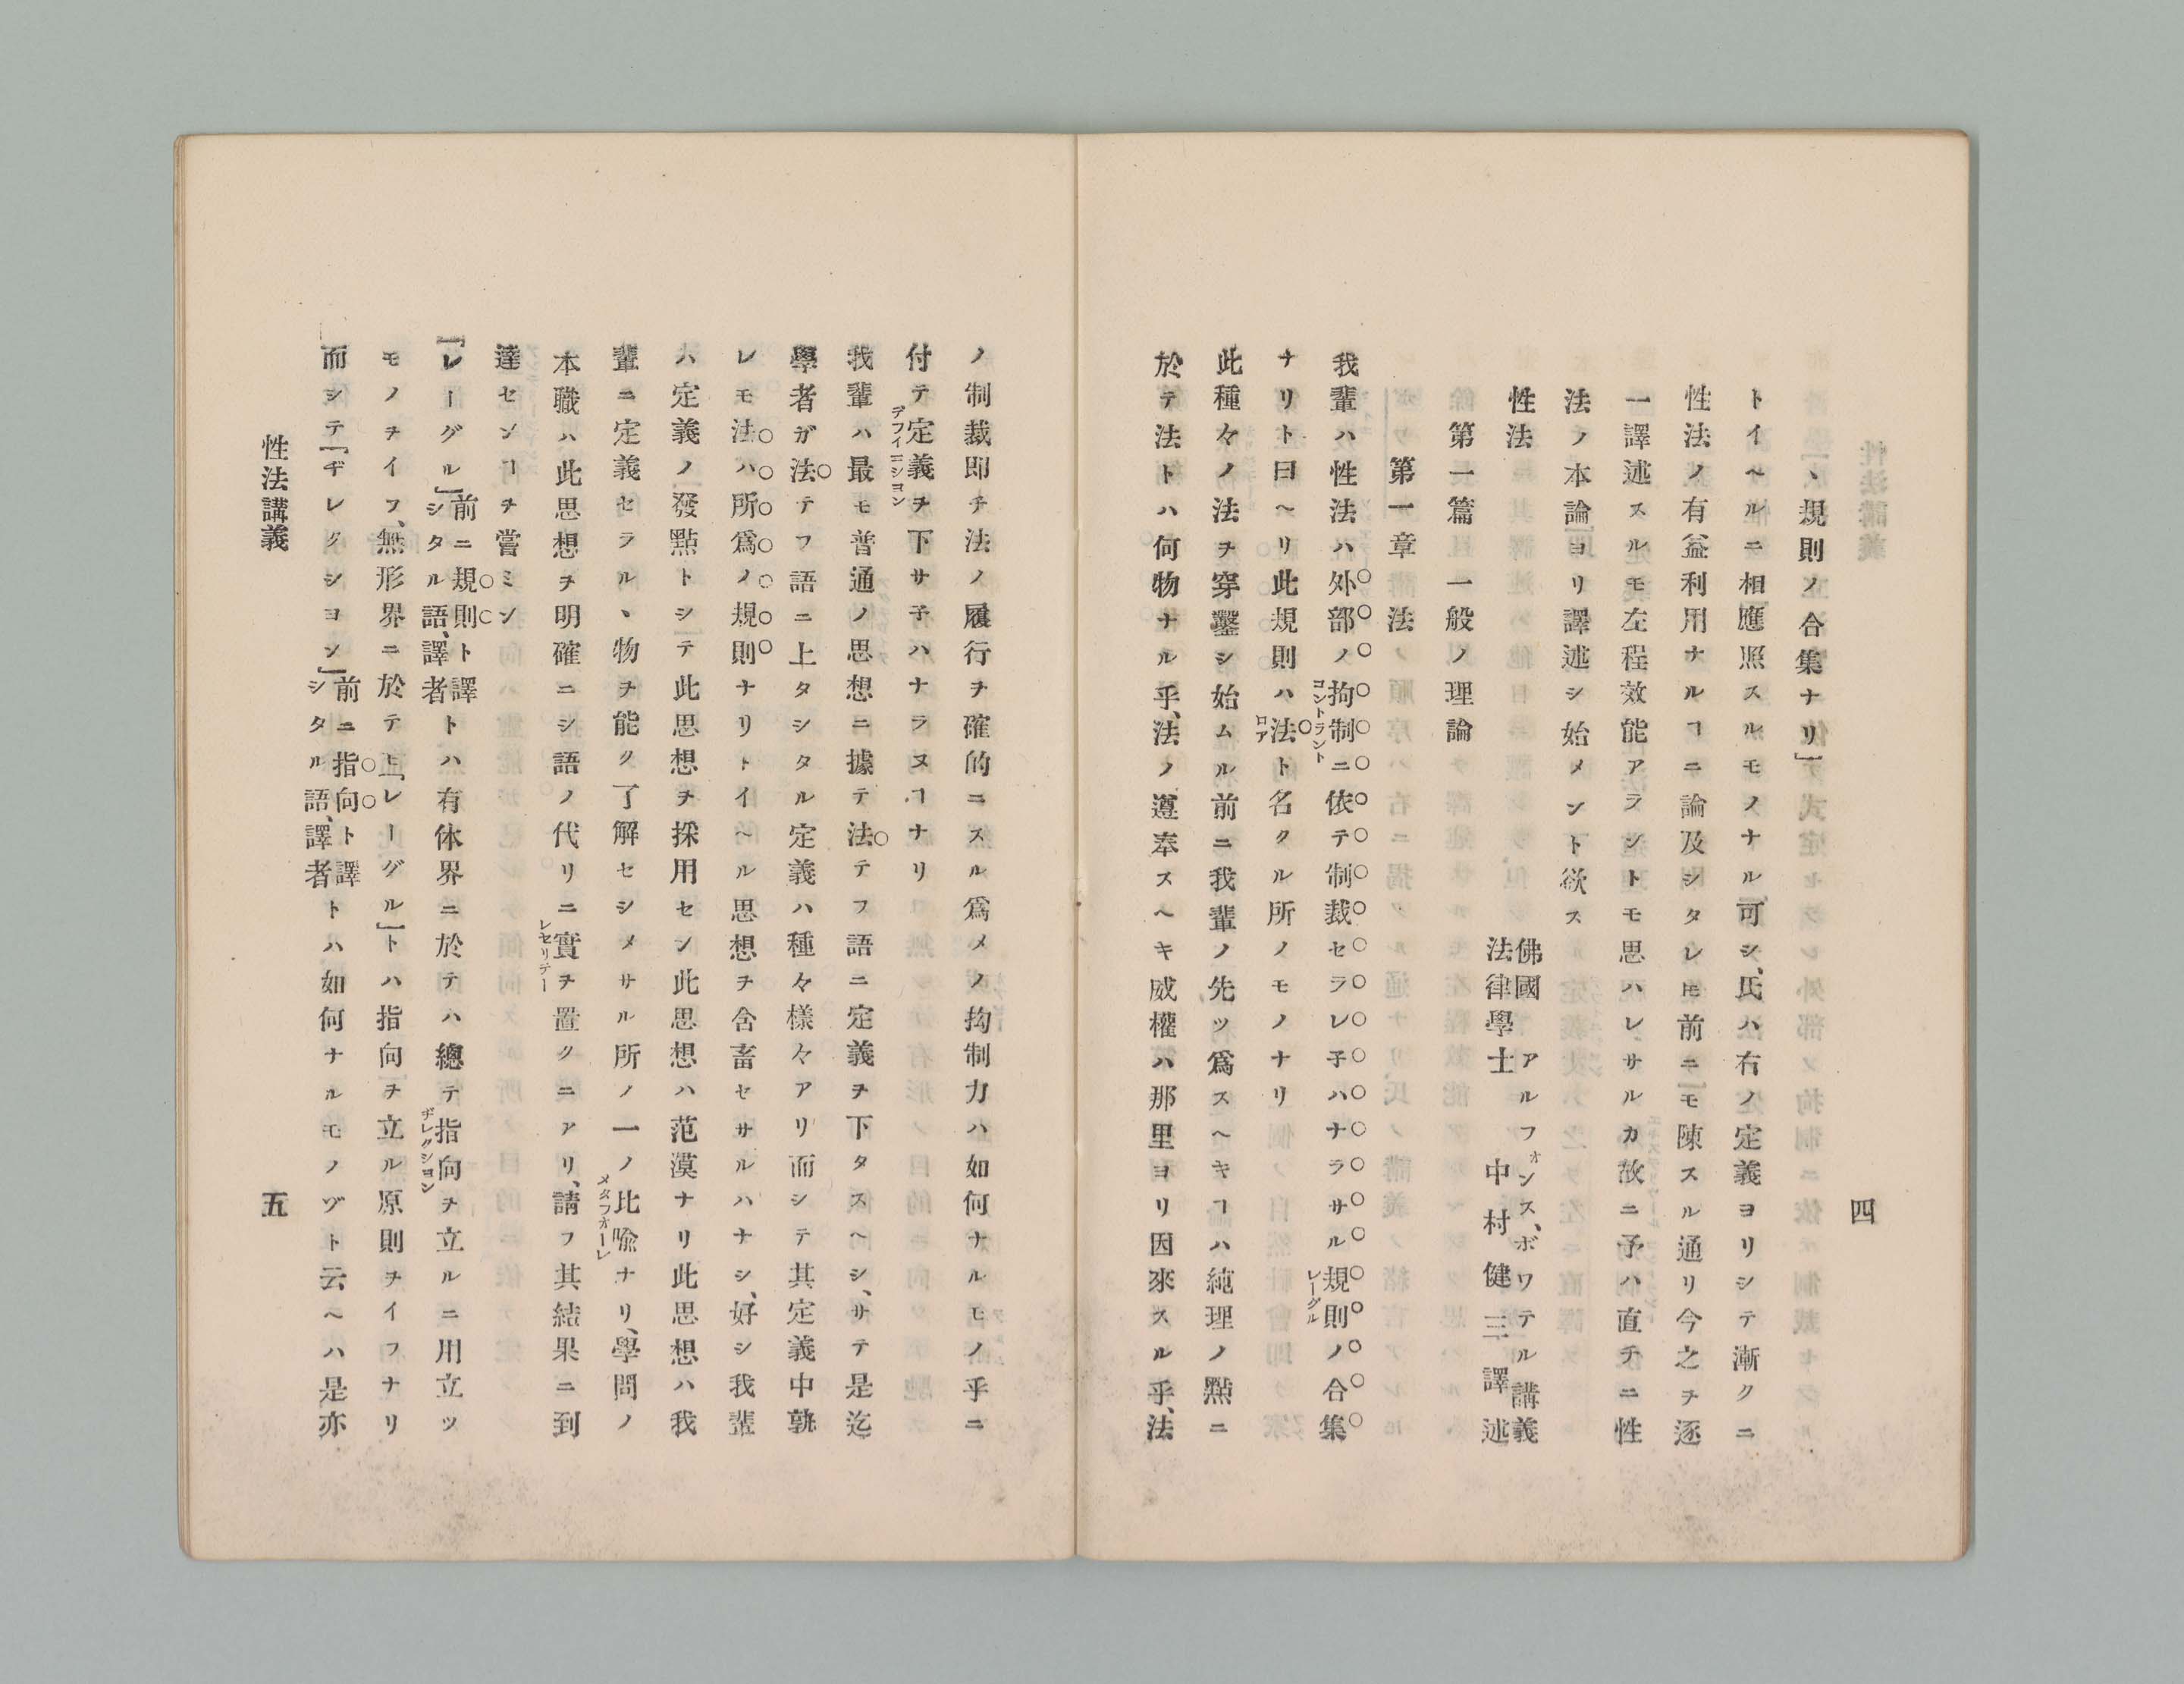 四
ヽ規則ノ合集ナリ」
トイヘルニ相應照スルモノナル可シ、氏ハ右ノ定義ヨリシテ漸クニ
性法ノ有益利用ナルヿニ論及シタレ𪜈前ニモ陳スル通リ今之ヲ逐
一譯述スルモ左程效能アラントモ思ハレサルカ故ニ予ハ直チニ性
法ノ本論ヨリ譯述シ始メント欲ス
性法
佛國 アルフォンス、ボワテル講義
法律學士 中村健三譯述
第一篇 一般ノ理論
第一章 法
我輩ハ性法ハ外部ノ拘制ニ依テ制裁セラレ子ハナラサル規則ノ合集
コントラント
レーグル
ナリト曰ヘリ此規則ハ法ト名クル所ノモノナリ
ロア
此種々ノ法ヲ穿鑿シ始ムル前ニ我輩ノ先ツ爲スヘキヿハ純理ノ點ニ
於テ法トハ何物ナル乎、法ノ遵奉スヘキ威權ハ那里ヨリ因來スル乎、法
ノ制裁即チ法ノ履行ヲ確的ニスル爲メノ拘制力ハ如何ナルモノ乎ニ
付テ定義ヲ下サ子ハナラヌヿナリ
デフイニシヨン
我輩ハ最モ普通ノ思想ニ據テ法テフ語ニ定義ヲ下タスヘシ、サテ是迄
學者ガ法テフ語ニ上タシタル定義ハ種々樣々アリ而シテ其定義中孰
レモ法ハ所爲ノ規則ナリトイヘル思想ヲ含畜セサルハナシ、好シ我輩
ハ定義ノ發點トシテ此思想ヲ採用セン此思想ハ范漠ナリ此思想ハ我
輩ニ定義セラルヽ物ヲ能ク了解セシメサル所ノ一ノ比喩ナリ、學問ノ
メタフオーレ
本職ハ此思想ヲ明確ニシ語ノ代リニ實ヲ置クニアリ、請フ其結果ニ到
レセリテー
達センヿヲ嘗ミン
「レーグル」前ニ規則ト譯シタル語、譯者トハ有休界ニ於テハ總テ指向ヲ立ルニ用立ツ
ヂレクシヨン
モノヲイフ、無形界ニ於テ上「レーグル」トハ指向ヲ立ル原則ヲイフナリ
而シテ「ヂレクシヨン」前ニ指向ト譯シタル語、譯者トハ如何ナルモノゾト云ヘハ是亦
性法講義
五